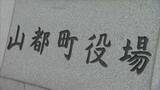 山都町役場